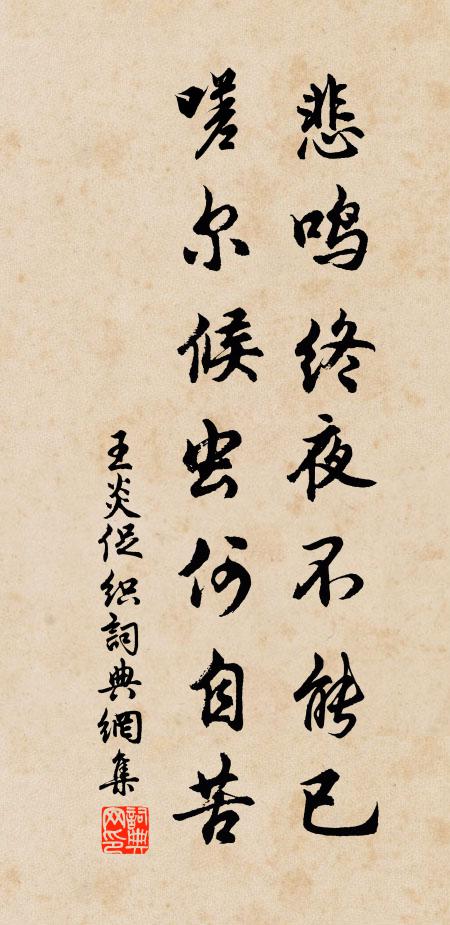 悲鸣终夜不能已
嗟尔候虫何自苦
王炎促织詞典網集
詞典网印